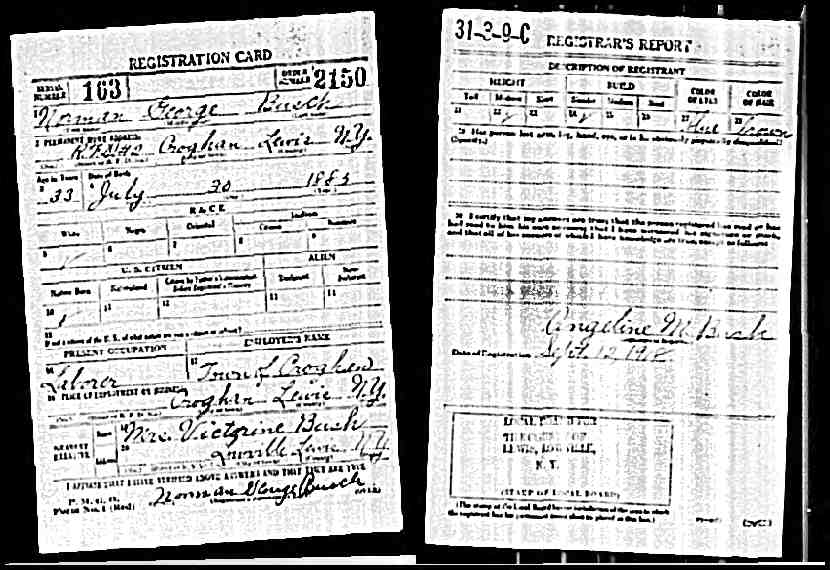 REGISTRATION CARD
SERIAL NUMBER 163 ORDER NUMBER 2150
1 Norman George Busch
2 PERMANENT HOME ADDRESS
R.F.D.#2 Croghan Lewis N.Y.
Age in Years Date of Birth
33 July 30 1885
RACE
White Negro Oriental Indian
Citizen
5 6 7 8 9
U. S. CITIZEN ALIEN
Native Born Naturalized Declarant Non-declarant
10 11 12 13 14
15
If not a citizen of the U. S., of what nation are you a citizen or subject?
PRESENT OCCUPATION EMPLOYER'S NAME
16 Laborer 17 Town of Croghan
18 PLACE OF EMPLOYMENT OR BUSINESS
Croghan Lewis N.Y.
NEAREST RELATIVE Name 19 Mrs. Victorine Bush
Address 20 Lowville Lewis N.Y.
I AFFIRM THAT I HAVE VERIFIED ABOVE ANSWERS AND THAT THEY ARE TRUE
P. M. G. O.
Form No. 1 (Red) Norman George Busch
31-3-9-C REGISTRAR'S REPORT
DESCRIPTION OF REGISTRANT
HEIGHT BUILD COLOR OF EYES COLOR OF HAIR
Tall Medium Short Slender Medium Stout
21 22 23 24 25 26 27 Blue 28 Brown
29 Has person lost arm, leg, hand, eye, or is he obviously physically disqualified?
(Specify.)
30 I certify that my answers are true; that the person registered has read or has
had read to him his own answers; that I have witnessed his signature or mark,
and that all of his answers of which I have knowledge are true, except as follows:
Angeline M. Bush
Date of Registration Sept. 12, 1918
LOCAL BOARD FOR
THE COUNTY OF
LEWIS, LOWVILLE,
N. Y.
(STAMP OF LOCAL BOARD)
(The stamp of the Local Board having jurisdiction of the area in which
the registrant has his permanent home shall be placed in this box.)
(OVER)